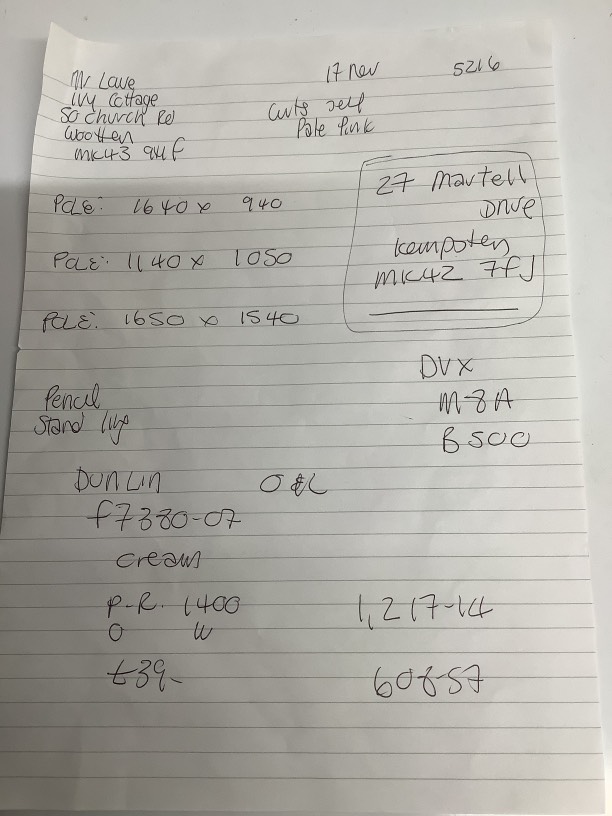 17 Nov 5216
Mr Lowe
Ivy Cottage
50 Church Rd
Wootten
MK43 9HF
Curts self
Pale Pink
27 Martell
Drive
Kempsten
MK42 7FJ
POLE: 1640 x 940
POLE: 1140 x 1050
POLE: 1650 x 1540
Pencil
Stand
DVX
M-8A
B500
DUNLIN O & L
F7380-07
cream
P-R. 1400
O W
£39-
1,217-14
608-57